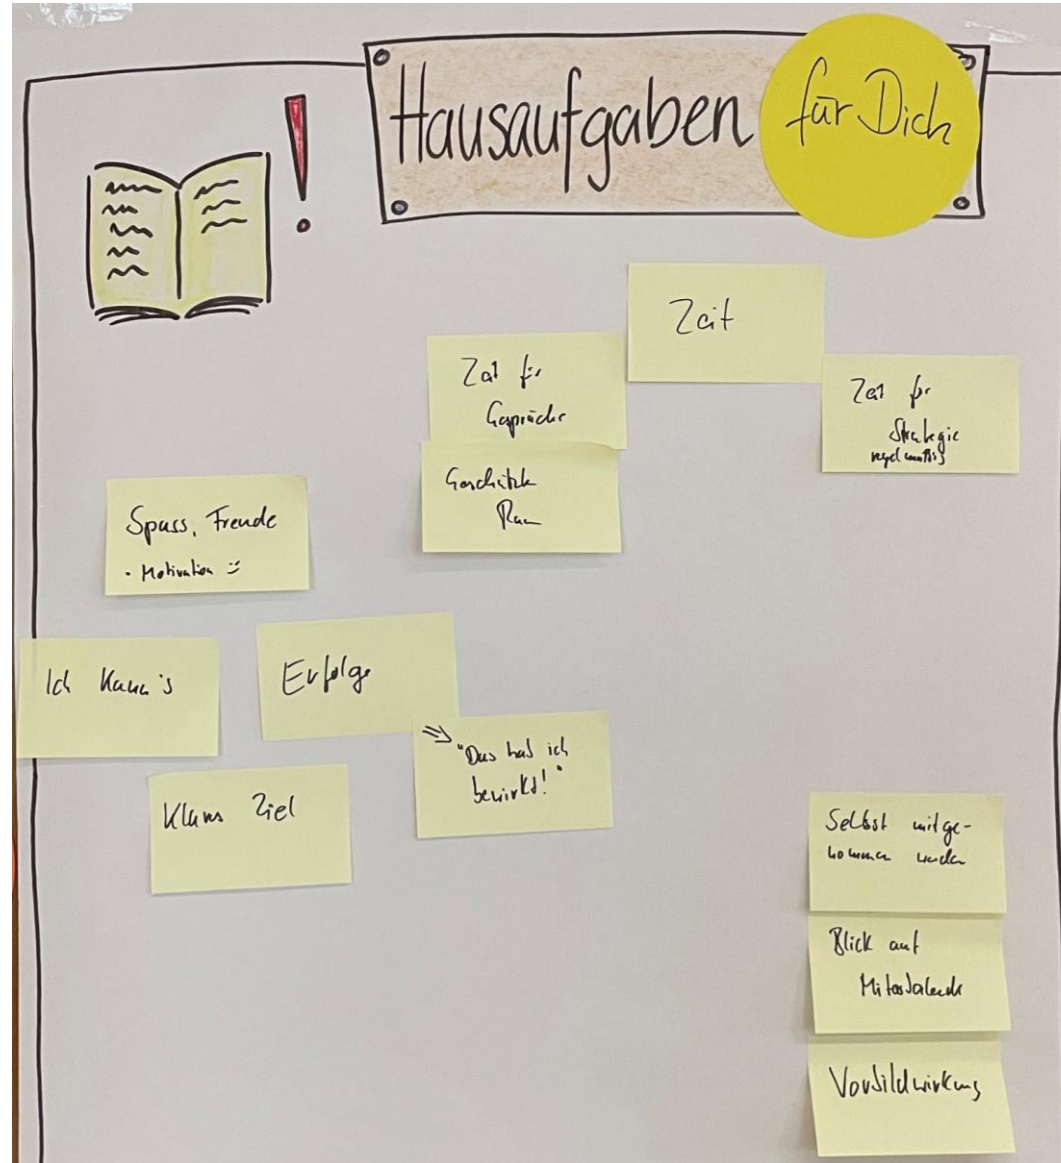 Hausaufgaben für Dich
Zeit
Zeit für
Gespräche
Zeit für
Strategie
regelmäßig
Geschützte
Raum
Spass, Freude
- Motivation
Ich kann's
Erfolge
⇒ "Das hat ich
bewirkt!"
Klares Ziel
Selbst mitge-
nommen werden
Blick auf
Vorbildwirkung